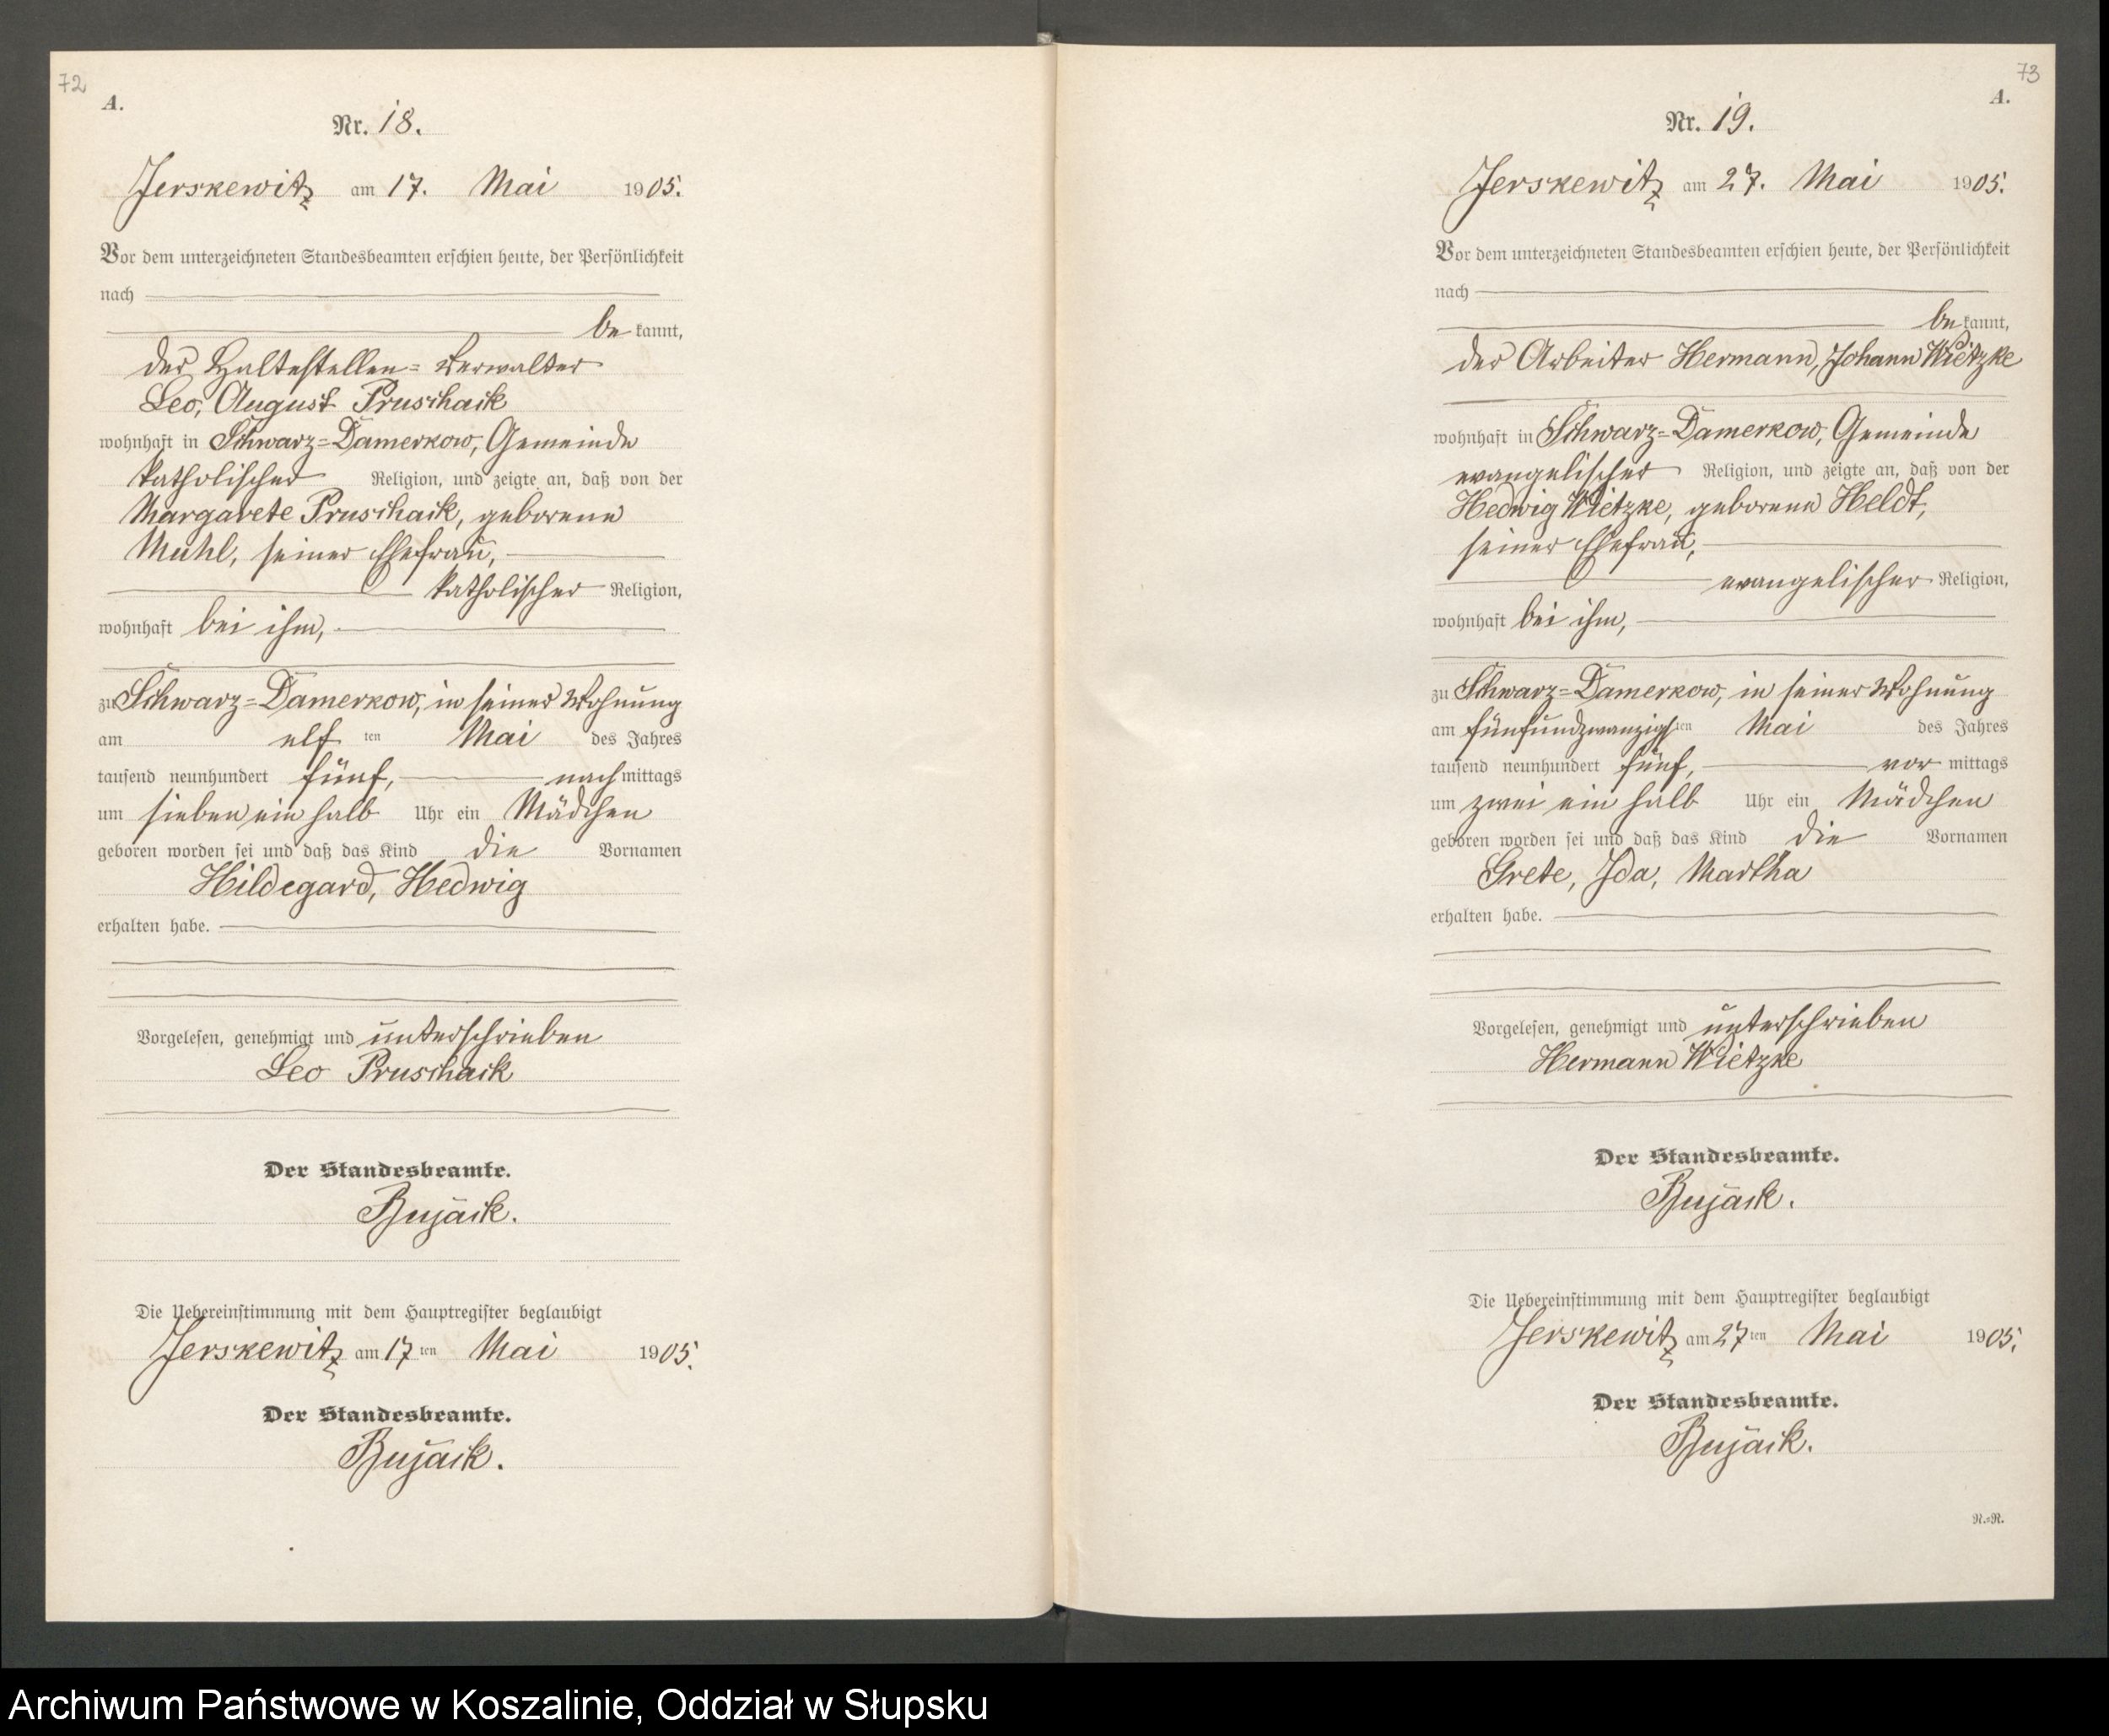 72
A.
Nr. 18.
Jerskewitz am 17. Mai 1905.
Vor dem unterzeichneten Standesbeamten erschien heute, der Persönlichkeit
nach
be kannt,
der Haltestellen=Verwalter
Leo, August Pruschack
wohnhaft in Schwarz=Damerkow, Gemeinde
katholischer Religion, und zeigte an, daß von der
Margarete Pruschack, geborene
Muhl, seiner Ehefrau,
katholischer Religion,
wohnhaft bei ihm,
zu Schwarz=Damerkow, in seiner Wohnung
am elf ten Mai des Jahres
tausend neunhundert fünf, nach mittags
um sieben ein halb Uhr ein Mädchen
geboren worden sei und daß das Kind die Vornamen
Hildegard, Hedwig
erhalten habe.
Vorgelesen, genehmigt und unterschrieben
Leo Pruschack
Der Standesbeamte.
Bujack.
Die Uebereinstimmung mit dem Hauptregister beglaubigt
Jerskewitz am 17 ten Mai 1905.
Der Standesbeamte.
Bujack.
73
A.
Nr. 19.
Jerskewitz am 27. Mai 1905.
Vor dem unterzeichneten Standesbeamten erschien heute, der Persönlichkeit
nach
be kannt,
der Arbeiter Hermann, Johann Wietzke
wohnhaft in Schwarz=Damerkow, Gemeinde
evangelischer Religion, und zeigte an, daß von der
Hedwig Wietzke, geborene Heldt,
seiner Ehefrau,
evangelischer Religion,
wohnhaft bei ihm,
zu Schwarz=Damerkow, in seiner Wohnung
am fünfundzwanzigsten Mai des Jahres
tausend neunhundert fünf, vor mittags
um zwei ein halb Uhr ein Mädchen
geboren worden sei und daß das Kind die Vornamen
Grete, Ida, Martha
erhalten habe.
Vorgelesen, genehmigt und unterschrieben
Hermann Wietzke
Der Standesbeamte.
Bujack.
Die Uebereinstimmung mit dem Hauptregister beglaubigt
Jerskewitz am 27 ten Mai 1905.
Der Standesbeamte.
Bujack.
N.=N.
Archiwum Państwowe w Koszalinie, Oddział w Słupsku